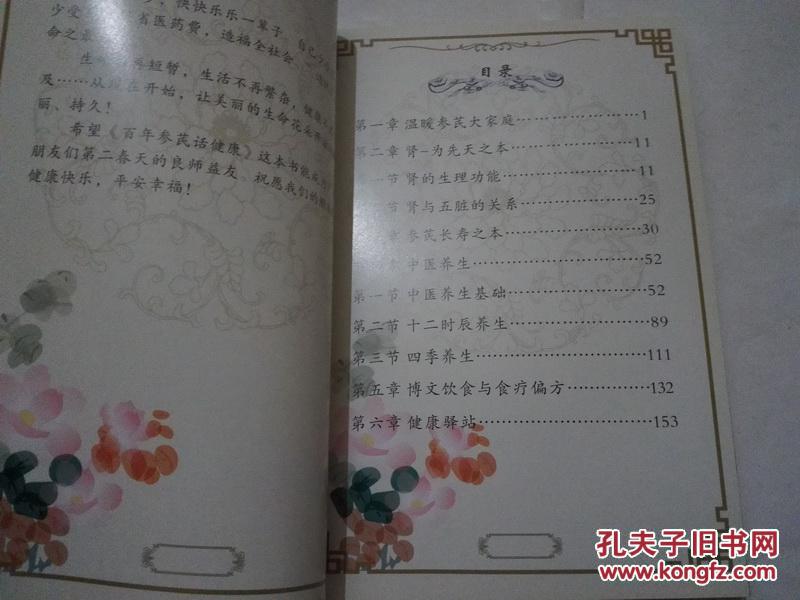 快快乐乐一辈子,自己少
少受
省医药费,造福全社会
命之
生
短暂,生活不再繁杂,健康
及……从现在开始,让美丽的生命花朵
丽、持久!
希望《百年参芪话健康》这本书能成
朋友们第二春天的良师益友。祝愿我们的
健康快乐,平安幸福!
目录
第一章 温暖参芪大家庭…………………1
第二章 肾-为先天之本…………………11
节 肾的生理功能…………………11
节 肾与五脏的关系…………………25
章 参芪长寿之本…………………30
章 中医养生…………………52
第一节 中医养生基础…………………52
第二节 十二时辰养生…………………89
第三节 四季养生…………………111
第五章 博文饮食与食疗偏方…………132
第六章 健康驿站…………………153
孔夫子旧书网
www.kongfz.com